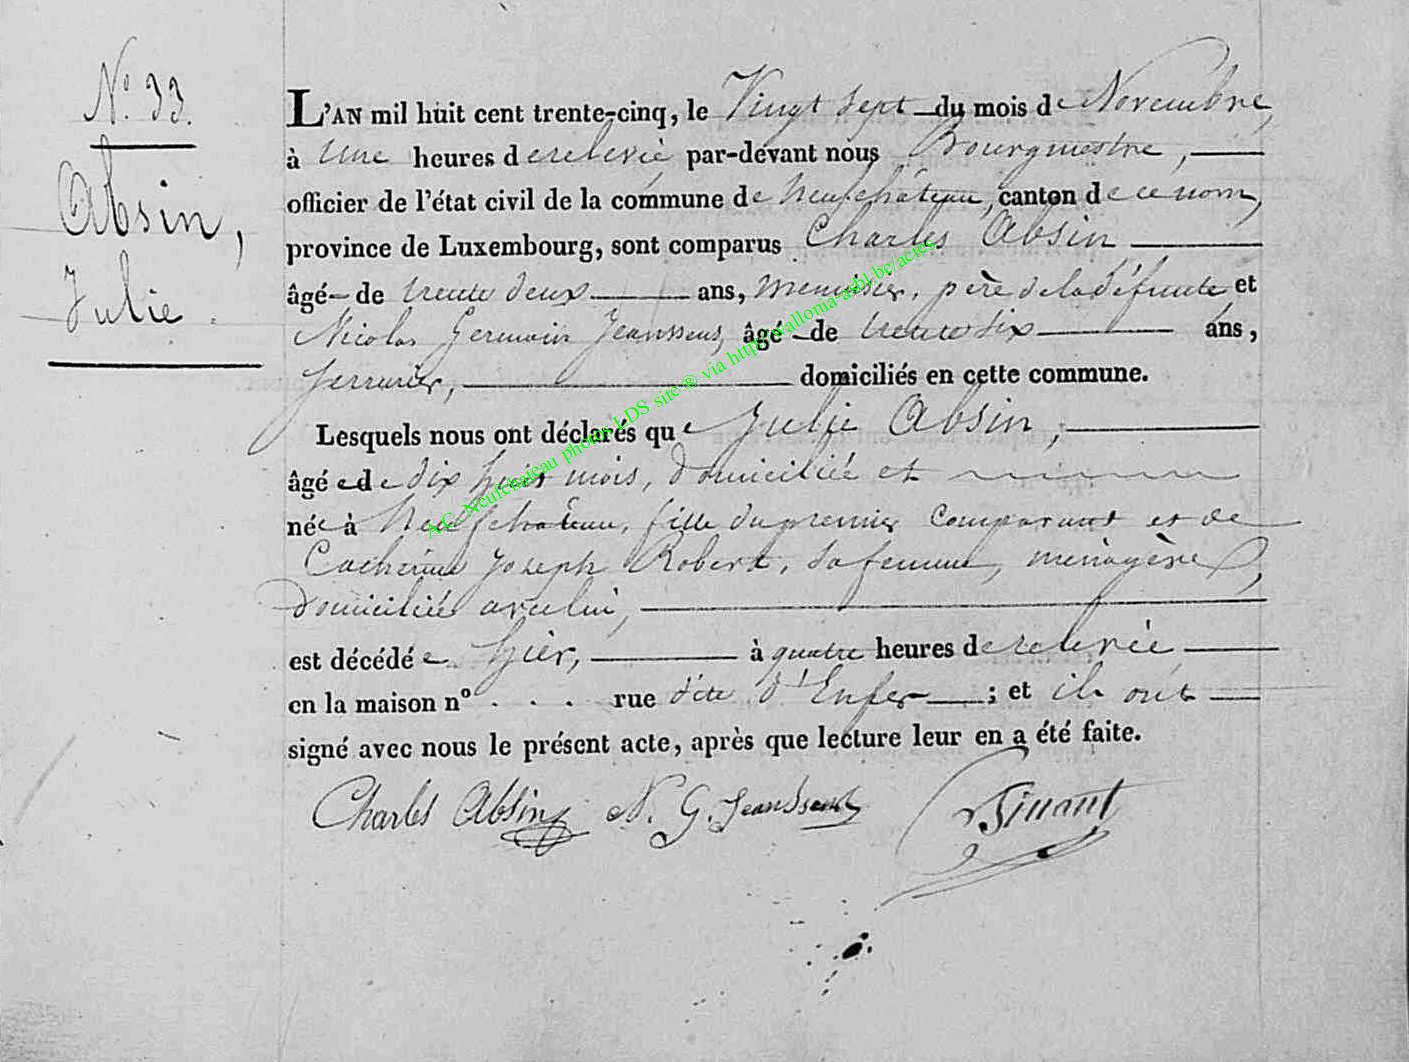 N.º 33.
Absin,
Julie.
L'AN mil huit cent trente-cinq, le Vingt sept du mois de Novembre,
à une heures de relevée par-devant nous Bourgmestre,
officier de l'état civil de la commune de Neufchâteau, canton de ce nom,
province de Luxembourg, sont comparus Charles Absin
âgé de trente deux ans, menuisier, père de la défunte et
Nicolas Germain Jeanssens, âgé de trente six ans,
serrurier, domiciliés en cette commune.
Lesquels nous ont déclarés que Julie Absin,
âgée de dix huit mois, domiciliée et
née à Neufchâteau, fille du premier comparant et de
Catherine Joseph Robert, sa femme, ménagère,
domiciliée avec lui,
est décédée hier, à quatre heures de relevée
en la maison nº . . . rue dite d'Enfer ; et ils ont
signé avec nous le présent acte, après que lecture leur en a été faite.
Charles Absin N. G. Jeanssens
A.C. Neufchateau photos LDS site ® via http://wallonia-asbl.be/actes